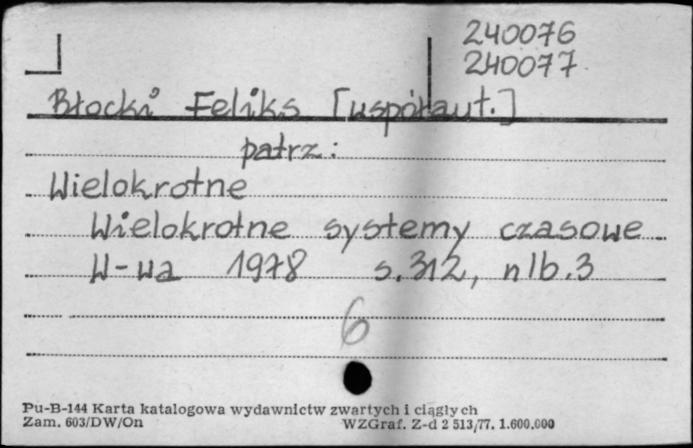 240076
240077
Błocki Feliks [współaut.]
patrz:
Wielokrotne
Wielokrotne systemy czasowe
W-wa 1978 s. 312, nlb. 3
6
Pu-B-144 Karta katalogowa wydawnictw zwartych i ciągłych
Zam. 603/DW/On WZGraf. Z-d 2 513/77. 1.600.000